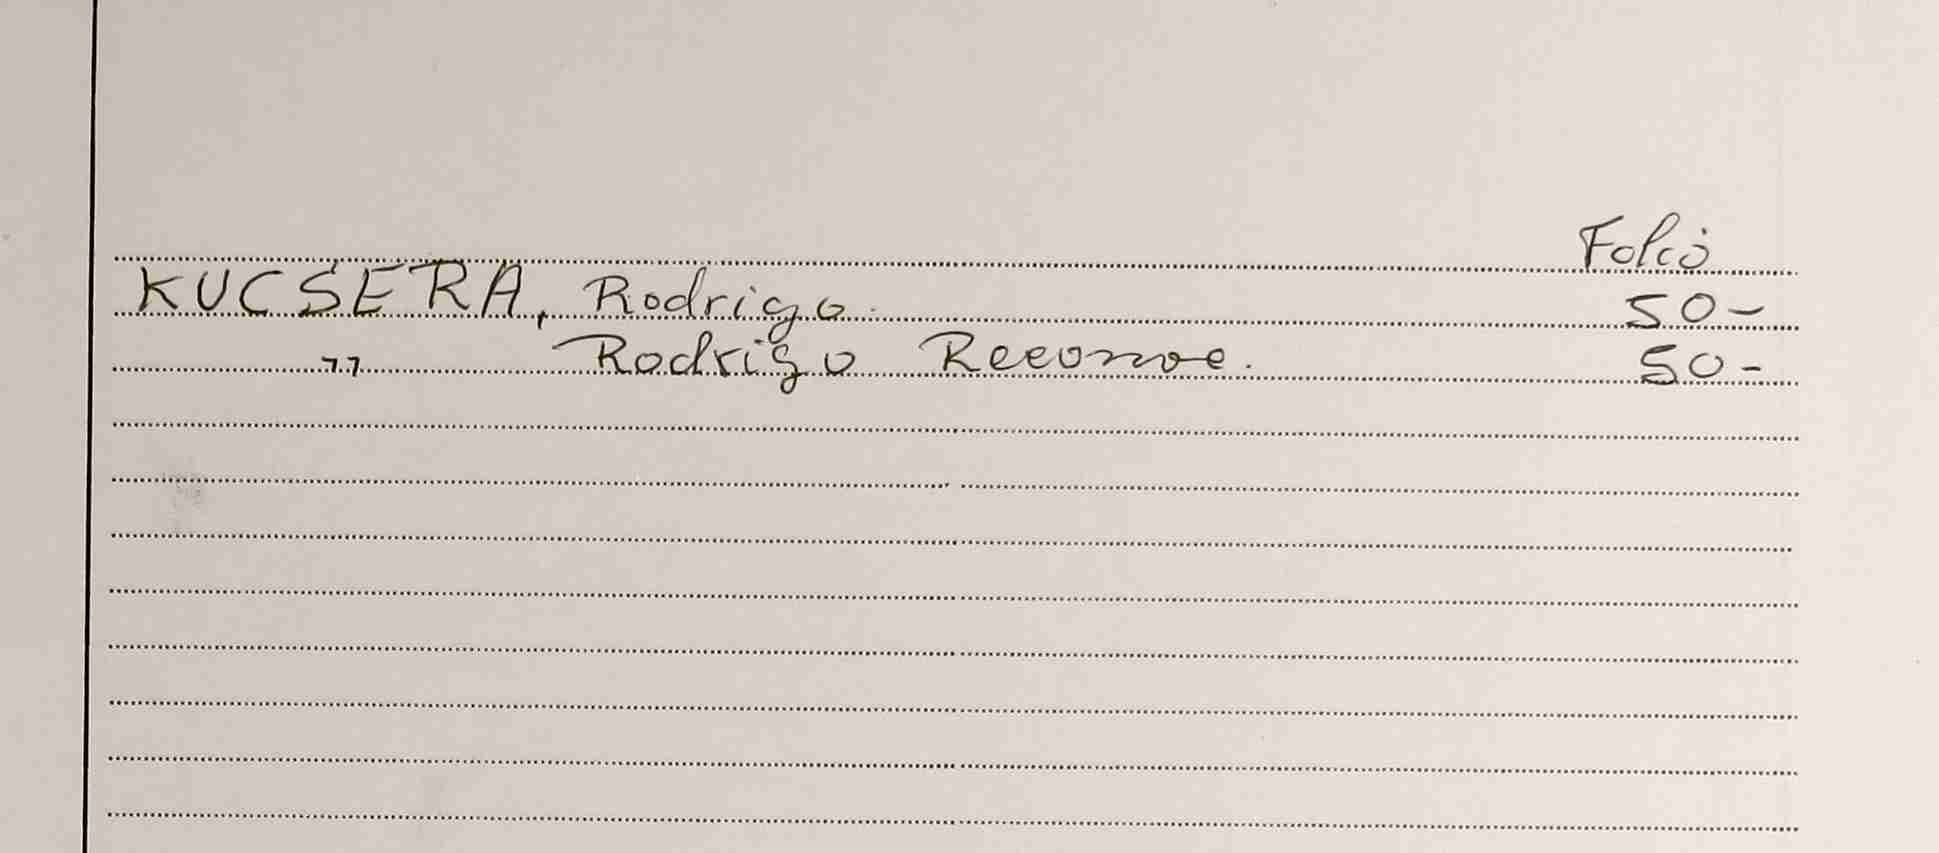 Folio
KUCSERA, Rodrigo. 50-
" Rodrigo 50-